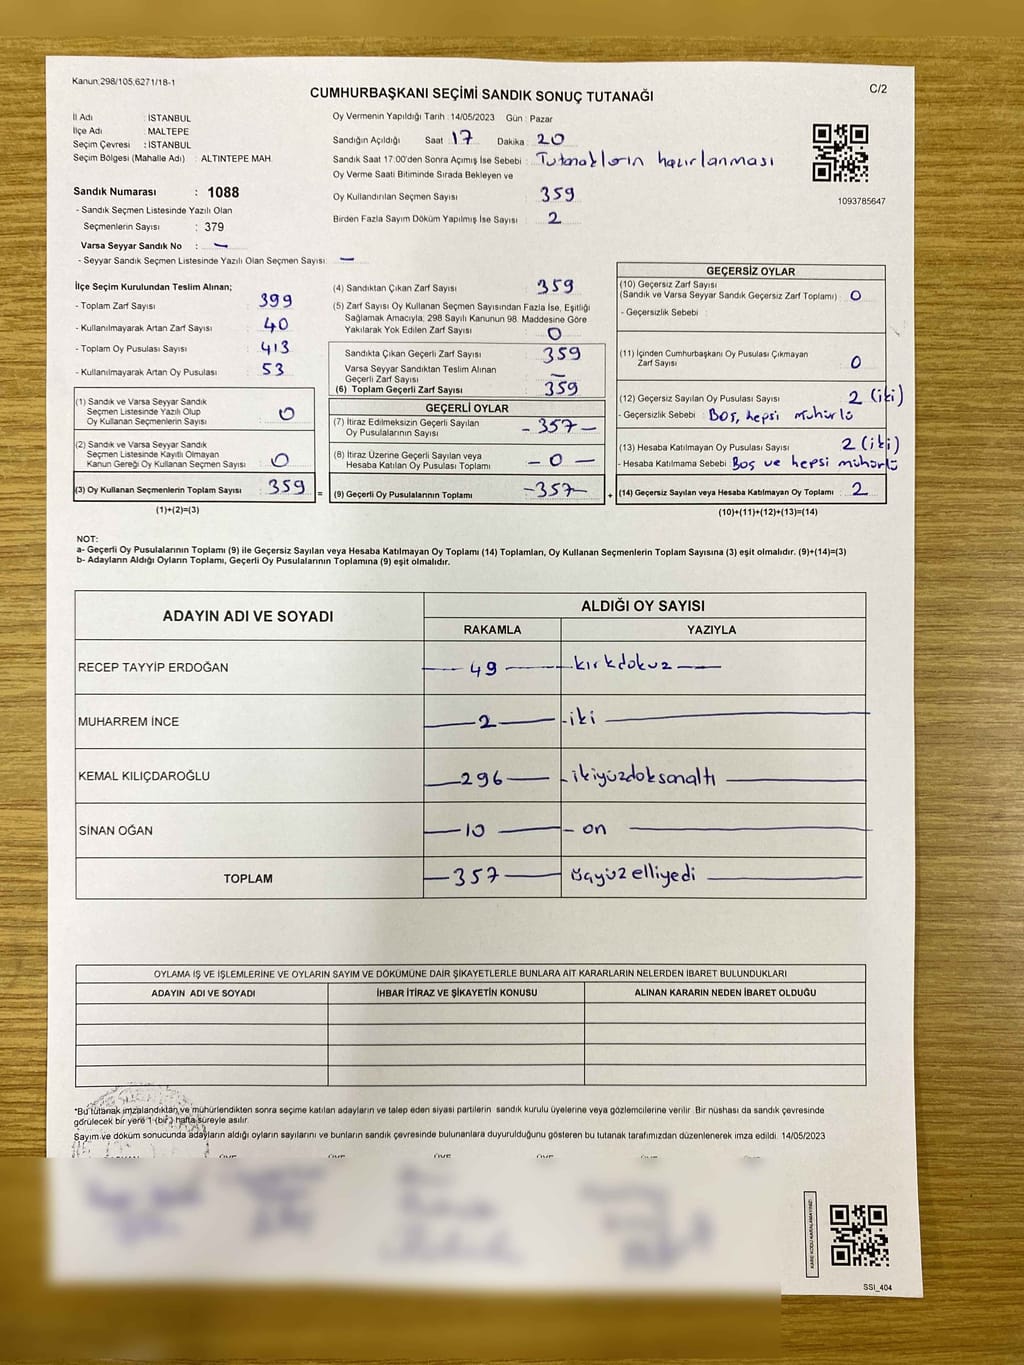 Kanun,298/105,6271/18-1
C/2
CUMHURBAŞKANI SEÇİMİ SANDIK SONUÇ TUTANAĞI
İl Adı : İSTANBUL
İlçe Adı : MALTEPE
Seçim Çevresi : İSTANBUL
Seçim Bölgesi (Mahalle Adı) : ALTINTEPE MAH.
Sandık Numarası : 1088
- Sandık Seçmen Listesinde Yazılı Olan
Seçmenlerin Sayısı : 379
Varsa Seyyar Sandık No : —
- Seyyar Sandık Seçmen Listesinde Yazılı Olan Seçmen Sayısı: —
Oy Vermenin Yapıldığı Tarih : 14/05/2023 Gün : Pazar
Sandığın Açıldığı Saat 17 Dakika : 20
Sandık Saat 17:00'den Sonra Açımış İse Sebebi : Tutanakların hazırlanması
Oy Verme Saati Bitiminde Sırada Bekleyen ve
Oy Kullandırılan Seçmen Sayısı : 359
Birden Fazla Sayım Döküm Yapılmış İse Sayısı : 2
1093785647
İlçe Seçim Kurulundan Teslim Alınan;
- Toplam Zarf Sayısı : 399
- Kullanılmayarak Artan Zarf Sayısı : 40
- Toplam Oy Pusulası Sayısı : 413
- Kullanılmayarak Artan Oy Pusulası : 53
(1) Sandık ve Varsa Seyyar Sandık
Seçmen Listesinde Yazılı Olup
Oy Kullanan Seçmenlerin Sayısı : 0
(2) Sandık ve Varsa Seyyar Sandık
Seçmen Listesinde Kayıtlı Olmayan
Kanun Gereği Oy Kullanan Seçmen Sayısı : 0
(3) Oy Kullanan Seçmenlerin Toplam Sayısı : 359 =
(1)+(2)=(3)
(4) Sandıktan Çıkan Zarf Sayısı : 359
(5) Zarf Sayısı Oy Kullanan Seçmen Sayısından Fazla İse, Eşitliği
Sağlamak Amacıyla; 298 Sayılı Kanunun 98. Maddesine Göre
Yakılarak Yok Edilen Zarf Sayısı : 0
Sandıkta Çıkan Geçerli Zarf Sayısı : 359
Varsa Seyyar Sandıktan Teslim Alınan
Geçerli Zarf Sayısı : —
(6) Toplam Geçerli Zarf Sayısı : 359
GEÇERLİ OYLAR
(7) İtiraz Edilmeksizin Geçerli Sayılan
Oy Pusulalarının Sayısı : - 357 -
(8) İtiraz Üzerine Geçerli Sayılan veya
Hesaba Katılan Oy Pusulası Toplamı : - 0 -
(9) Geçerli Oy Pusulalarının Toplamı : - 357 - +
GEÇERSİZ OYLAR
(10) Geçersiz Zarf Sayısı
(Sandık ve Varsa Seyyar Sandık Geçersiz Zarf Toplamı) : 0
- Geçersizlik Sebebi :
(11) İçinden Cumhurbaşkanı Oy Pusulası Çıkmayan
Zarf Sayısı : 0
(12) Geçersiz Sayılan Oy Pusulası Sayısı : 2 (iki)
- Geçersizlik Sebebi : Boş, hepsi mühürlü
(13) Hesaba Katılmayan Oy Pusulası Sayısı : 2 (iki)
- Hesaba Katılmama Sebebi : Boş ve hepsi mühürlü
(14) Geçersiz Sayılan veya Hesaba Katılmayan Oy Toplamı : 2
(10)+(11)+(12)+(13)=(14)
NOT:
a- Geçerli Oy Pusulalarının Toplamı (9) ile Geçersiz Sayılan veya Hesaba Katılmayan Oy Toplamı (14) Toplamları, Oy Kullanan Seçmenlerin Toplam Sayısına (3) eşit olmalıdır. (9)+(14)=(3)
b- Adayların Aldığı Oyların Toplamı, Geçerli Oy Pusulalarının Toplamına (9) eşit olmalıdır.
ADAYIN ADI VE SOYADI
ALDIĞI OY SAYISI
RAKAMLA YAZIYLA
RECEP TAYYİP ERDOĞAN 49 kırkdokuz
MUHARREM İNCE 2 iki
KEMAL KILIÇDAROĞLU 296 ikiyüzdoksanaltı
SİNAN OĞAN 10 on
TOPLAM 357 üçyüzelliyedi
OYLAMA İŞ VE İŞLEMLERİNE VE OYLARIN SAYIM VE DÖKÜMÜNE DAİR ŞİKAYETLERLE BUNLARA AİT KARARLARIN NELERDEN İBARET BULUNDUKLARI
ADAYIN ADI VE SOYADI İHBAR İTİRAZ VE ŞİKAYETİN KONUSU ALINAN KARARIN NEDEN İBARET OLDUĞU
*Bu tutanak imzalandıktan ve mühürlendikten sonra seçime katılan adayların ve talep eden siyasi partilerin sandık kurulu üyelerine veya gözlemcilerine verilir. Bir nüshası da sandık çevresinde
görülecek bir yere 1 (bir) hafta süreyle asılır.
Sayım ve döküm sonucunda adayların aldığı oyların sayılarını ve bunların sandık çevresinde bulunanlara duyurulduğunu gösteren bu tutanak tarafımızdan düzenlenerek imza edildi. 14/05/2023
SSI_404